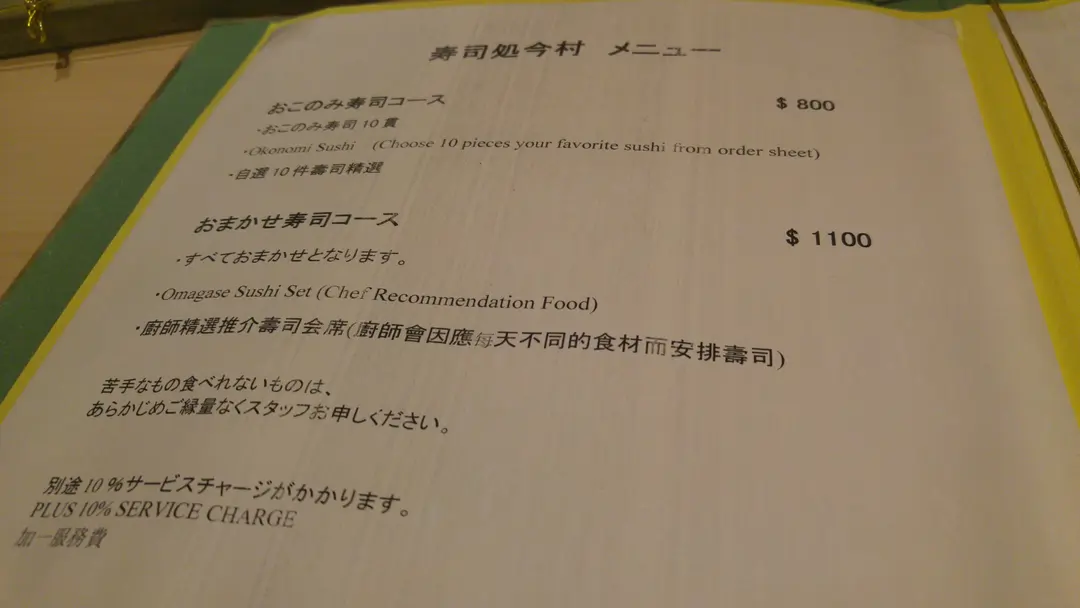 寿司処今村 メニュー
おこのみ寿司コース $ 800
・おこのみ寿司10貫
・Okonomi Sushi (Choose 10 pieces your favorite sushi from order sheet)
・自選10件壽司精選
おまかせ寿司コース $ 1100
・すべておまかせとなります。
・Omagase Sushi Set (Chef Recommendation Food)
・廚師精選推介壽司会席(廚師會因應每天不同的食材而安排壽司)
苦手なもの食べれないものは、
あらかじめご縁量なくスタッフお申しください。
別途10%サービスチャージがかかります。
PLUS 10% SERVICE CHARGE
加一服務費